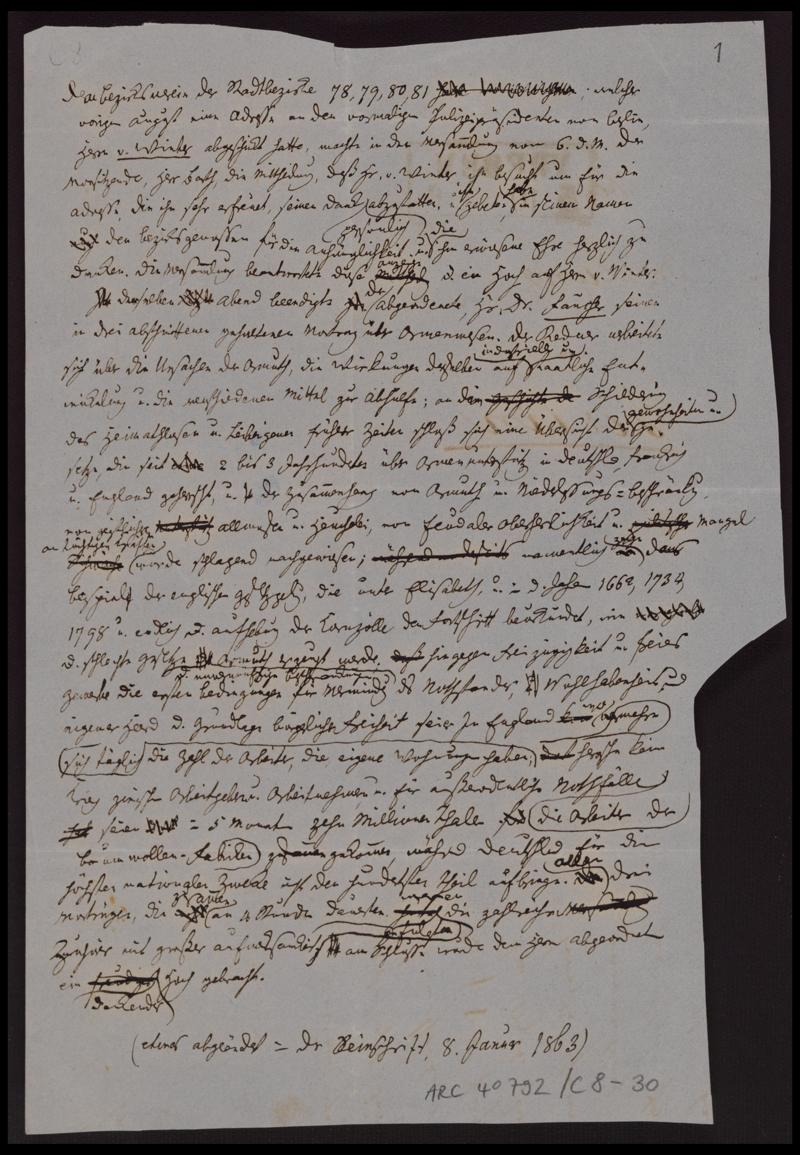 1
Der Bezirksverein der Stadtbezirke 78, 79, 80, 81 welcher
vorigen August eine Adresse an den vormaligen Polizeipräsidenten von Berlin,
Herrn v. Winter abgeschickt hatte, machte in der Versammlung vom 6. d. M. der
Vorsitzende, Herr die Mittheilung, daß Hr. v. Winter ihn besucht um für die
Adresse, die ihn sehr erfreut, seinen Dank abzustatten, u. ihn gebeten habe, in seinem Namen
den Bezirksgenossen für die Anhänglichkeit persönlich u. die ihm erwiesene Ehre herzlich zu
danken. Die Versammlung beantwortete diese Anzeige d. ein Hoch auf Herrn v. Winter.
denselben Abend beendigte der Abgeordnete Hr. Dr. Faucher seinen
in drei Abschnitten gehaltenen Vortrag über Armenwesen. Der Redner verbreitete
sich über die Ursachen der Armuth, die Wirkungen derselben auf industrielle u. staatliche Ent-
wickelung u. die verschiedenen Mittel zur Abhülfe; an die Schilderung
des Heimathlosen u. Leibeigenen früherer Zeiten schloß sich eine Übersicht der Gewohnheiten u. Ge-
setze, die seit 2 bis 3 Jahrhunderten über Armenunterstütz. in Deutschld, Frankreich
u. England geherrscht, u. der Zusammenhang von Armuth u. Niederlassungs-Beschränkung,
von Almosen u. Heuchelei, von feudaler Oberherrlichkeit u. Mangel
an wurde schlagend nachgewiesen; namentlich das
Beispiel der englischen Gesetzgeb., die unter Elisabeth, u. in d. Jahren 1662, 1732
1798 u. endlich d. Aufhebung der Kornzölle den Fortschritt beurkundet, wie
d. schlechte Gesetze Armuth erzeugt werde, hingegen Freizügigkeit u. freies
Gewerbe die ersten Bedingungen für Verminderung des Nothstandes, Wohlhabenheit, und
eigener Herd d. Grundlage bürgerlicher Freiheit seien. In England vermehre
sich täglich die Zahl der Arbeiter, die eigene Wohnungen haben; herrsche kein
Krieg zwischen Arbeitgebern u. Arbeitnehmern, u. für außerordentliche Nothfälle
seien in 5 Monaten zehn Millionen Thaler für die Arbeiter der
Baumwollen-Fabriken zusammengekommen, während Deutschld für die
höchsten nationalen Zwecke nicht den hundertsten Theil aufbringe. Allen drei
Vorträgen, die zusammen an 4 Stunden dauerten, folgten die zahlreichen
Zuhörer mit großer Aufmerksamkeit, am Schlusse wurde dem Herrn Abgeordneten
ein dankendes Hoch gebracht.
(etwas abgeändert in der Reinschrift, 8. Januar 1863)
ARC 4° 792 /C8-30